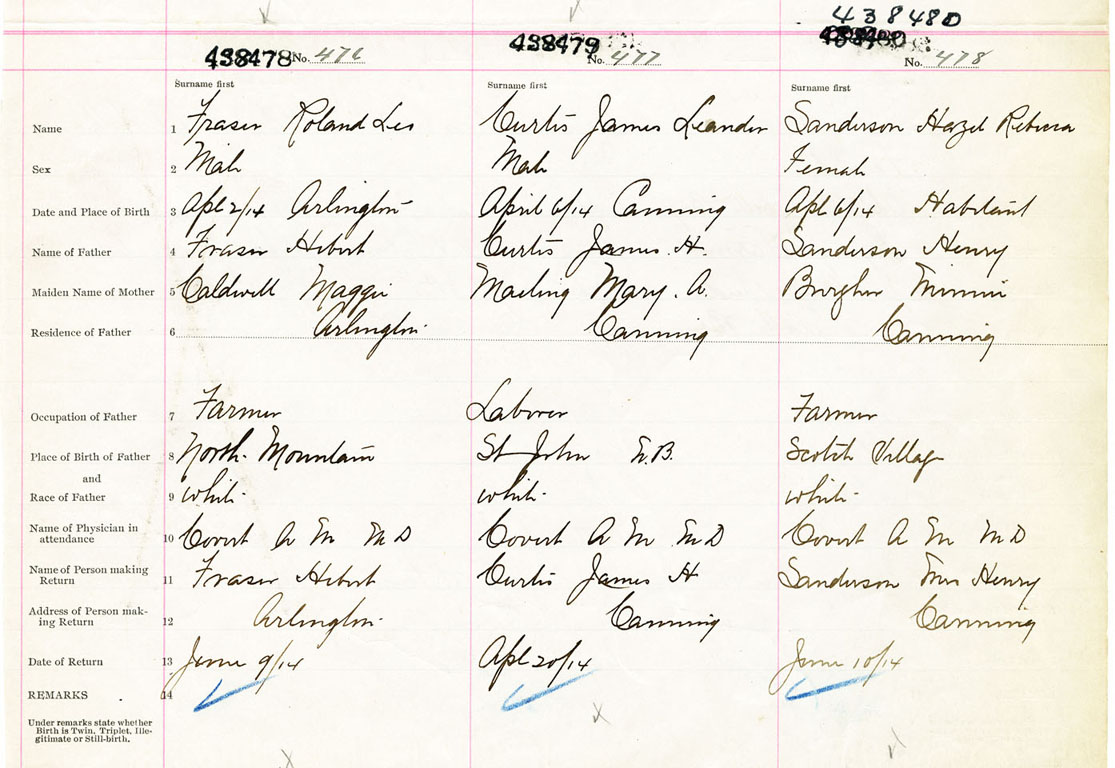 438480
438478 No. 476
438479 No. 477
No. 478
Surname first Surname first Surname first
Name 1 Fraser Roland Leo Curtis James Leander Sanderson Hazel Rebecca
Sex 2 Male Male Female
Date and Place of Birth 3 Apl 2/14 Arlington April 6/14 Canning Apl 6/14 Habitant
Name of Father 4 Fraser Hibert Curtis James H. Sanderson Henry
Maiden Name of Mother 5 Caldwell Maggie Mary. A. Minnie
Residence of Father 6 Arlington Canning Canning
Occupation of Father 7 Farmer Laborer Farmer
Place of Birth of Father 8 North Mountain St John N.B. Scotch Village
and
Race of Father 9 white white white
Name of Physician in
attendance 10 Covert A M M D Covert A M M D Covert A M M D
Name of Person making
Return 11 Fraser Hibert Curtis James H Sanderson Mrs Henry
Address of Person mak-
ing Return 12 Arlington Canning Canning
Date of Return 13 June 9/14 Apl 20/14 June 10/14
REMARKS 14
Under remarks state whether
Birth is Twin, Triplet, Ille-
gitimate or Still-birth.